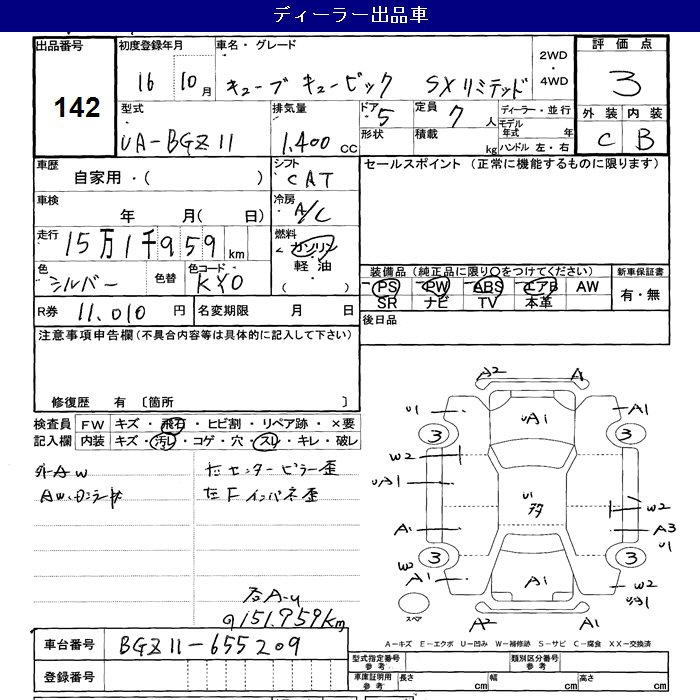 ディーラー出品車
出品番号 142
初度登録年月 16 10月
車名・グレード キューブ キュービック SXリミテッド
2WD・4WD
評価点 3
外装 C 内装 B
型式 UA-BGZ11
排気量 1,400 CC
ドア 5
形状
定員 7 人
積載 kg
ディーラー・並行
モデル年式 年
ハンドル 左・右
車歴 自家用・( )
シフト CAT
セールスポイント (正常に機能するものに限ります)
車検 年 月( 日)
冷房 A/C
走行 15万1千959km
燃料 ガソリン 軽油 ( )
色 シルバー 色替 色コード KY0
装備品 (純正品に限り○をつけてください) 新車保証書
PS PW ABS エアB AW 有・無
SR ナビ TV 本革
R券 11,010 円 名変期限 月 日
後日品
注意事項申告欄(不具合内容等は具体的に記入して下さい)
修復歴 有 〔箇所 〕
検査員記入欄
FW キズ・飛石・ヒビ割・リペア跡・×要
内装 キズ・汚レ・コゲ・穴・スレ・キレ・破レ
外AW 左センターピラー歪
左Fインパネ歪
151,959km
A2 A
U1 A1 A1
3 3
W2
UA1
U1
W2
A1 A3
U1
3 3
W2
A1 A1 W2
スペア
A2 A1
A-キズ E-エクボ U-凹み W-補修跡 S-サビ C-腐食 XX-交換済
車台番号 BGZ11-655209
登録番号
型式指定番号参考 類別区分番号参考
車庫証明用参考 長さ cm 幅 cm 高さ cm